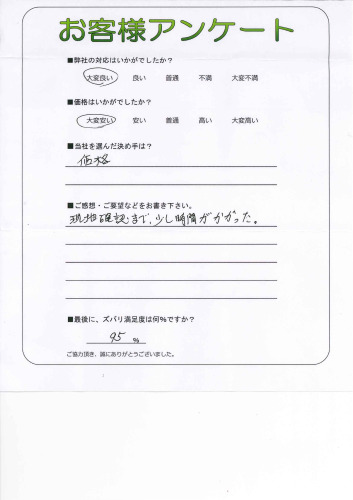 お客様アンケート
■弊社の対応はいかがでしたか？
大変良い 良い 普通 不満 大変不満
■価格はいかがでしたか？
大変安い 安い 普通 高い 大変高い
■当社を選んだ決め手は？
価格
■ご感想・ご要望などをお書き下さい。
現地確認まで、少し時間がかかった。
■最後に、ズバリ満足度は何%ですか？
95 %
ご協力頂き、誠にありがとうございました。